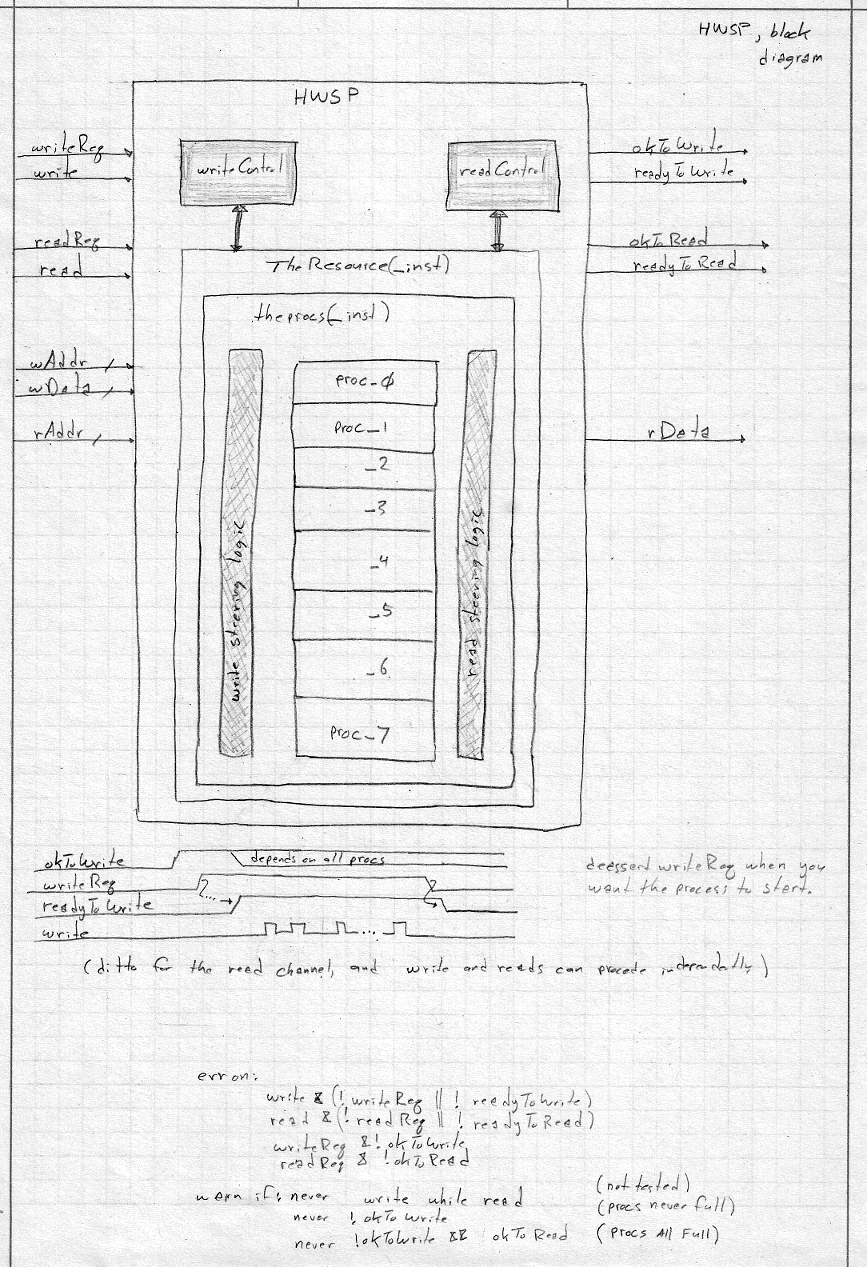 HWSP, block
diagram
HWSP
writeReq
write
writeControl
readControl
okToWrite
readyToWrite
readReq
read
okToRead
readyToRead
TheResource(_inst)
theprocs(_inst)
wAddr
wData
rAddr
rData
proc_0
proc_1
_2
_3
_4
_5
_6
proc_7
write steering logic
read steering logic
okToWrite
depends on all procs
writeReq
readyToWrite
write
deassert writeReq when you
want the process to start.
(ditto for the read channel, and write and reads can procede independently)
error:
write & (!writeReq || !readyToWrite)
read & (!readReq || !readyToRead)
writeReq & !okToWrite
readReq & !okToRead
warn if: never write while read (not tested)
never !okToWrite (procs never full)
never !okToWrite && okToRead (procs All Full)